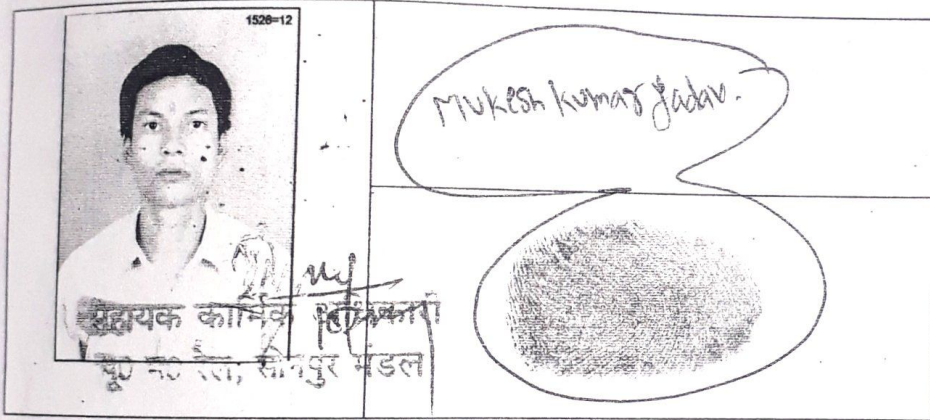 1528=12
Mukesh Kumar Yadav.
सहायक कार्मिक अधिकारी
पू० म० रेल, सोनपुर मंडल